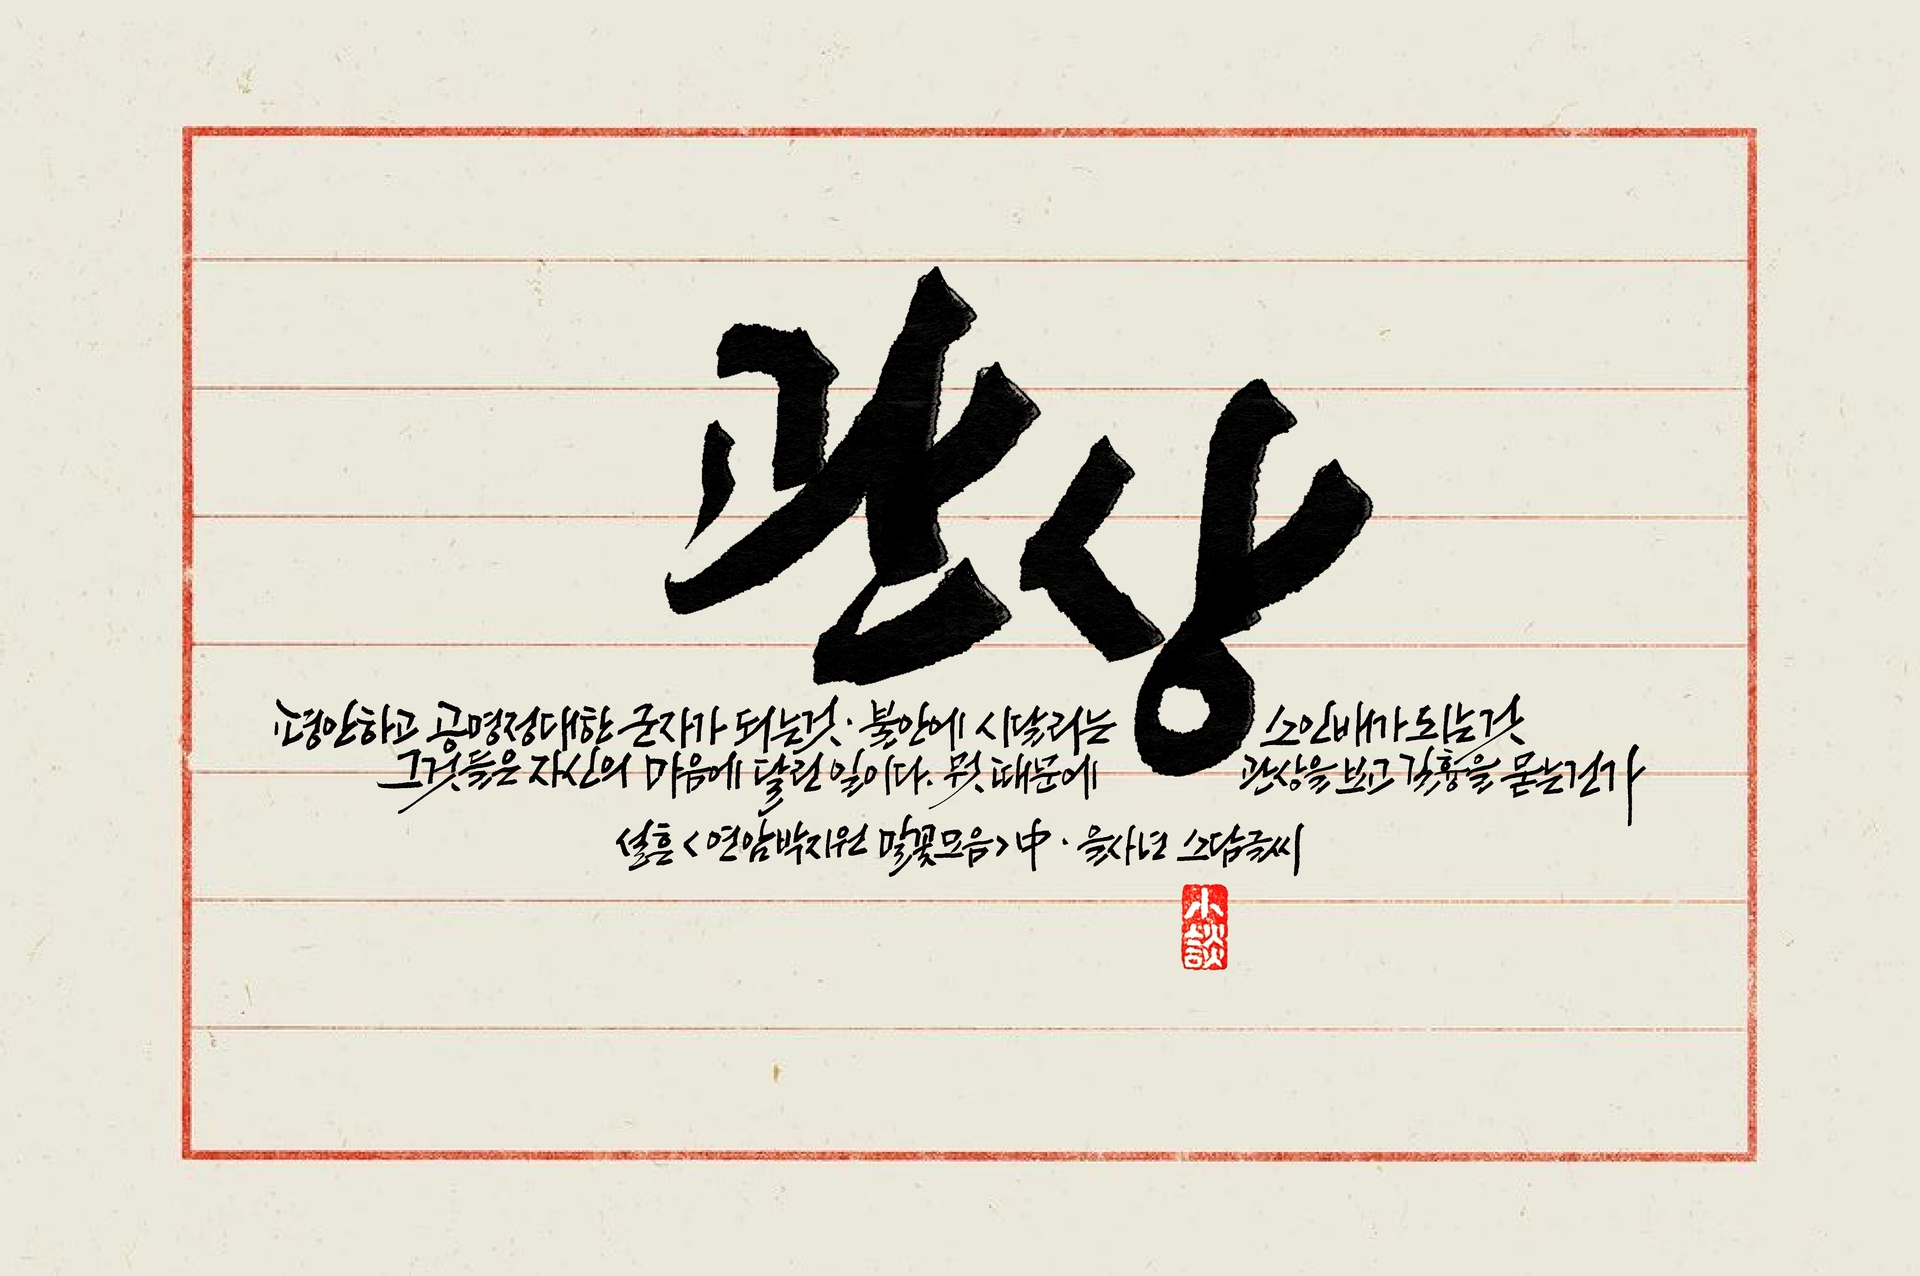 관상
평안하고 공명정대한 군자가 되는것·불안에 시달리는 소인배가 되는것
그것들은 자신의 마음에 달린 일이다. 뭣 때문에 관상을 보고 길흉을 묻는건가
설흔 <연암박지원 말꽃모음>中·을사년 소담글씨
小談